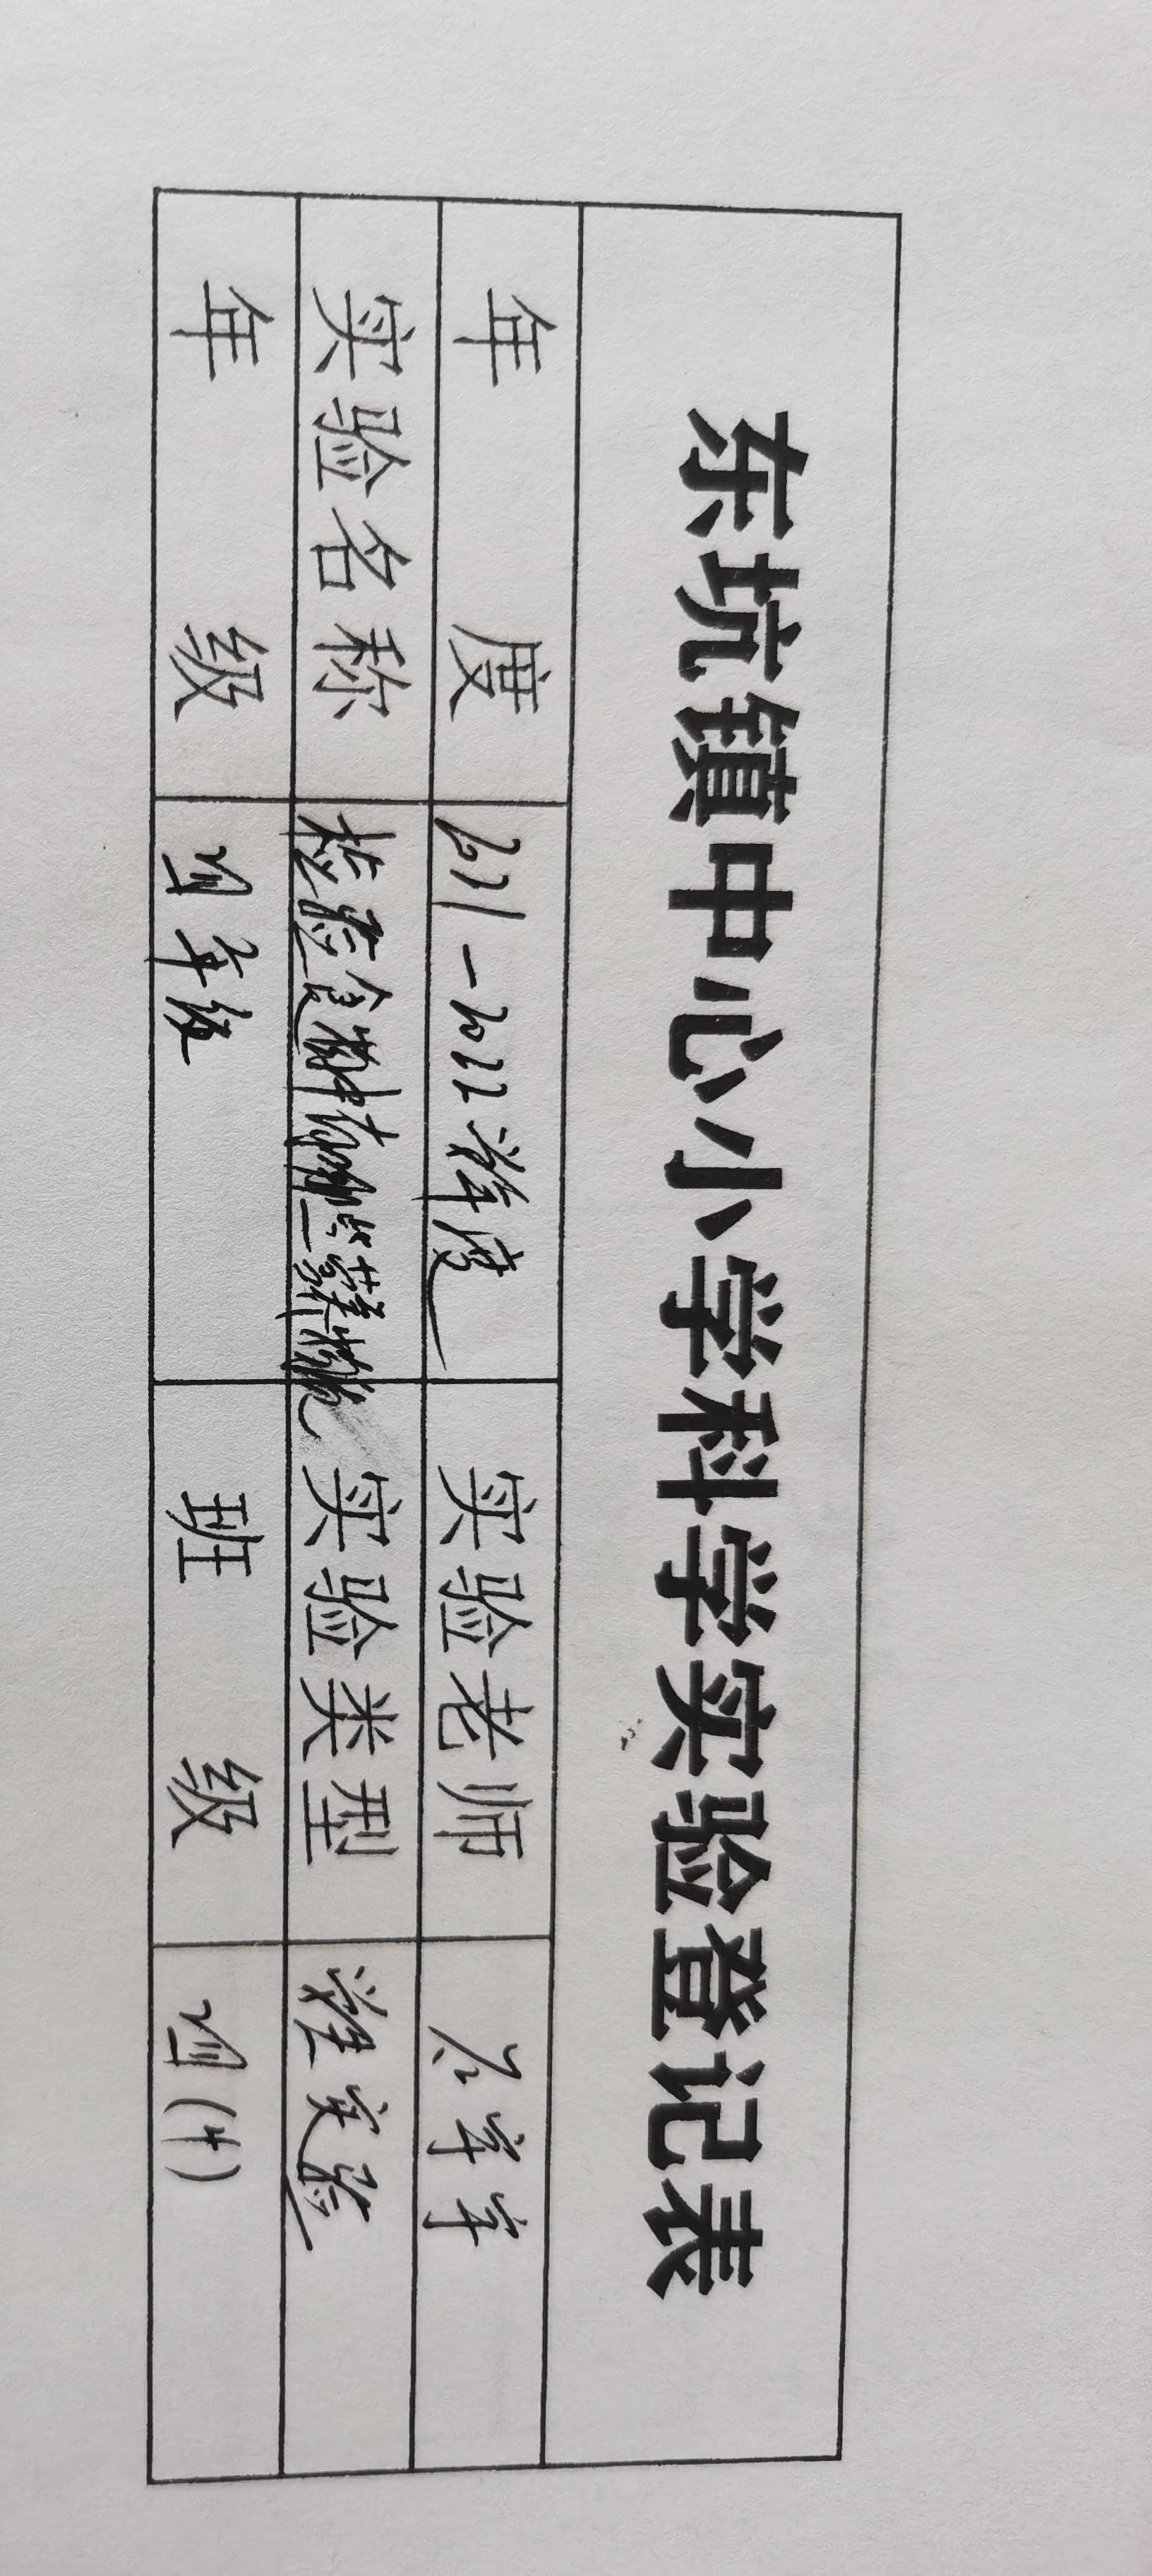 东坑镇中心小学科学实验登记表
年 度 2021-2022学年度 实验老师
实验名称 检验食物中有哪些营养物质 实验类型 学生实验
年 级 四年级 班 级 四(4)